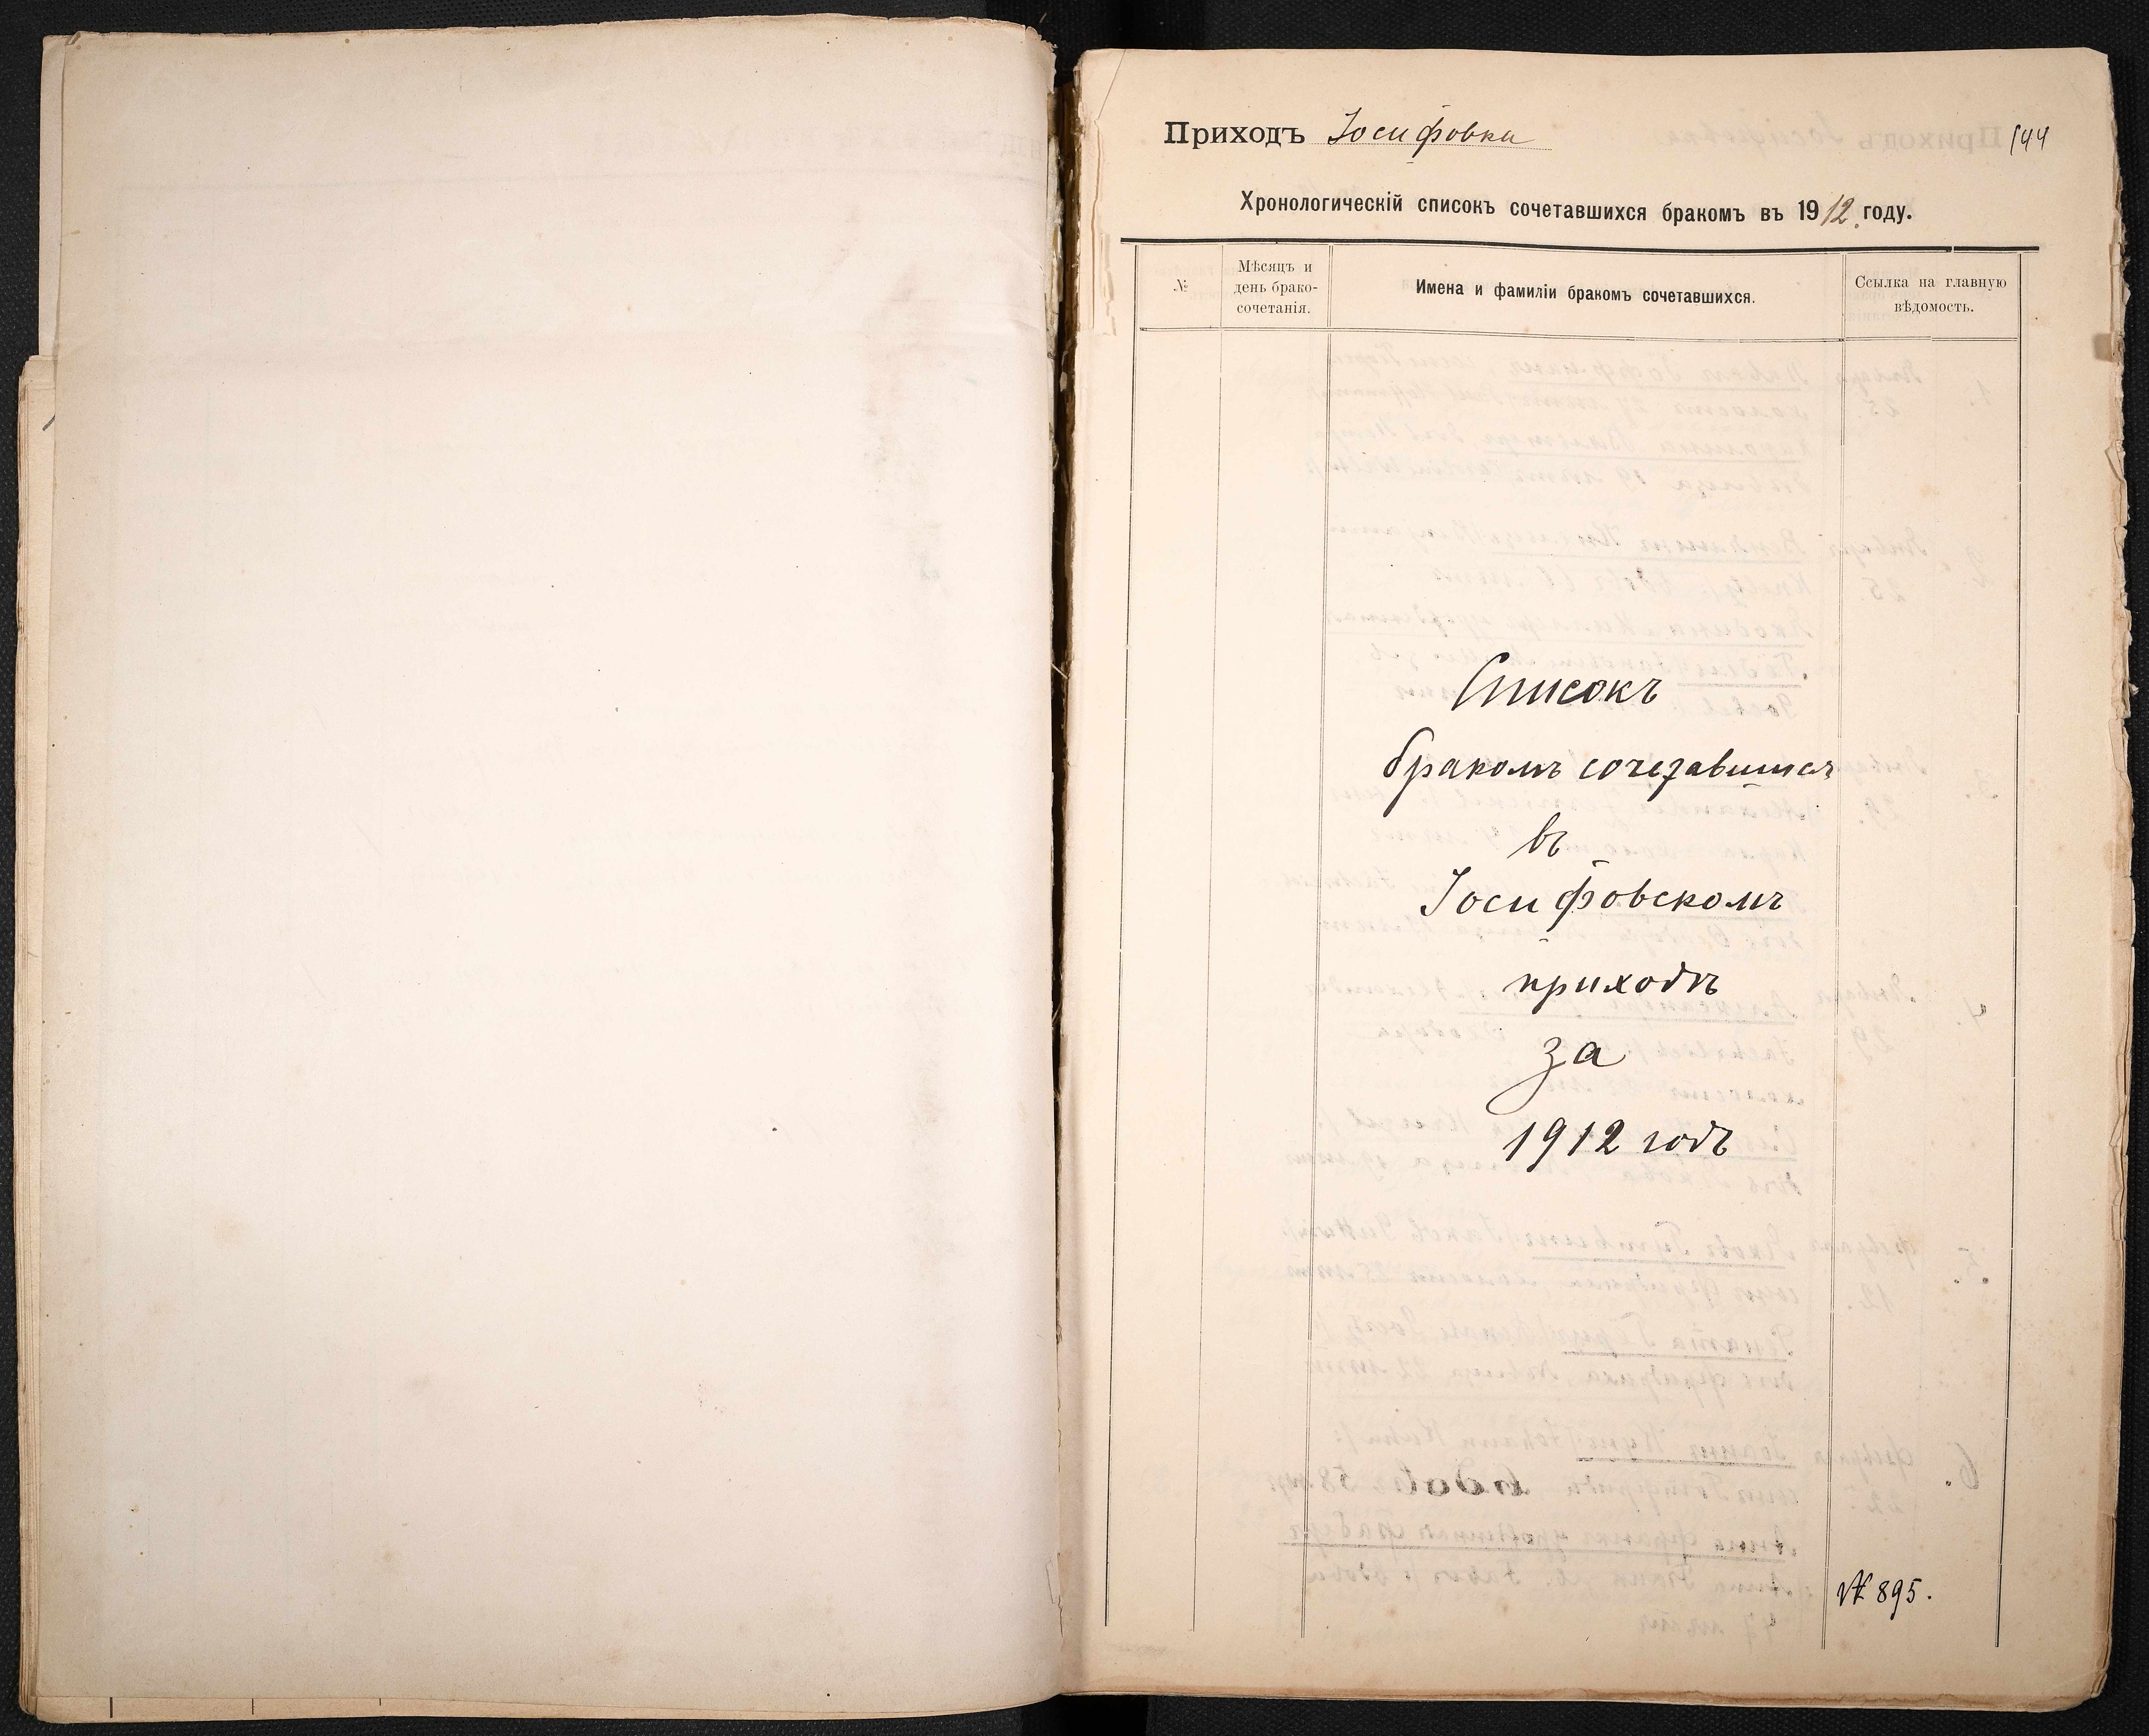 Приходъ Іосифовка
144
Хронологическій списокъ сочетавшихся бракомъ въ 1912 году.
№
Мѣсяцъ и
день брако-
сочетанія.
Имена и фамиліи бракомъ сочетавшихся.
Ссылка на главную
вѣдомость.
Списокъ
бракомъ сочетавшихся
въ
Іосифовскомъ
приходѣ
за
1912 годъ
№ 895.